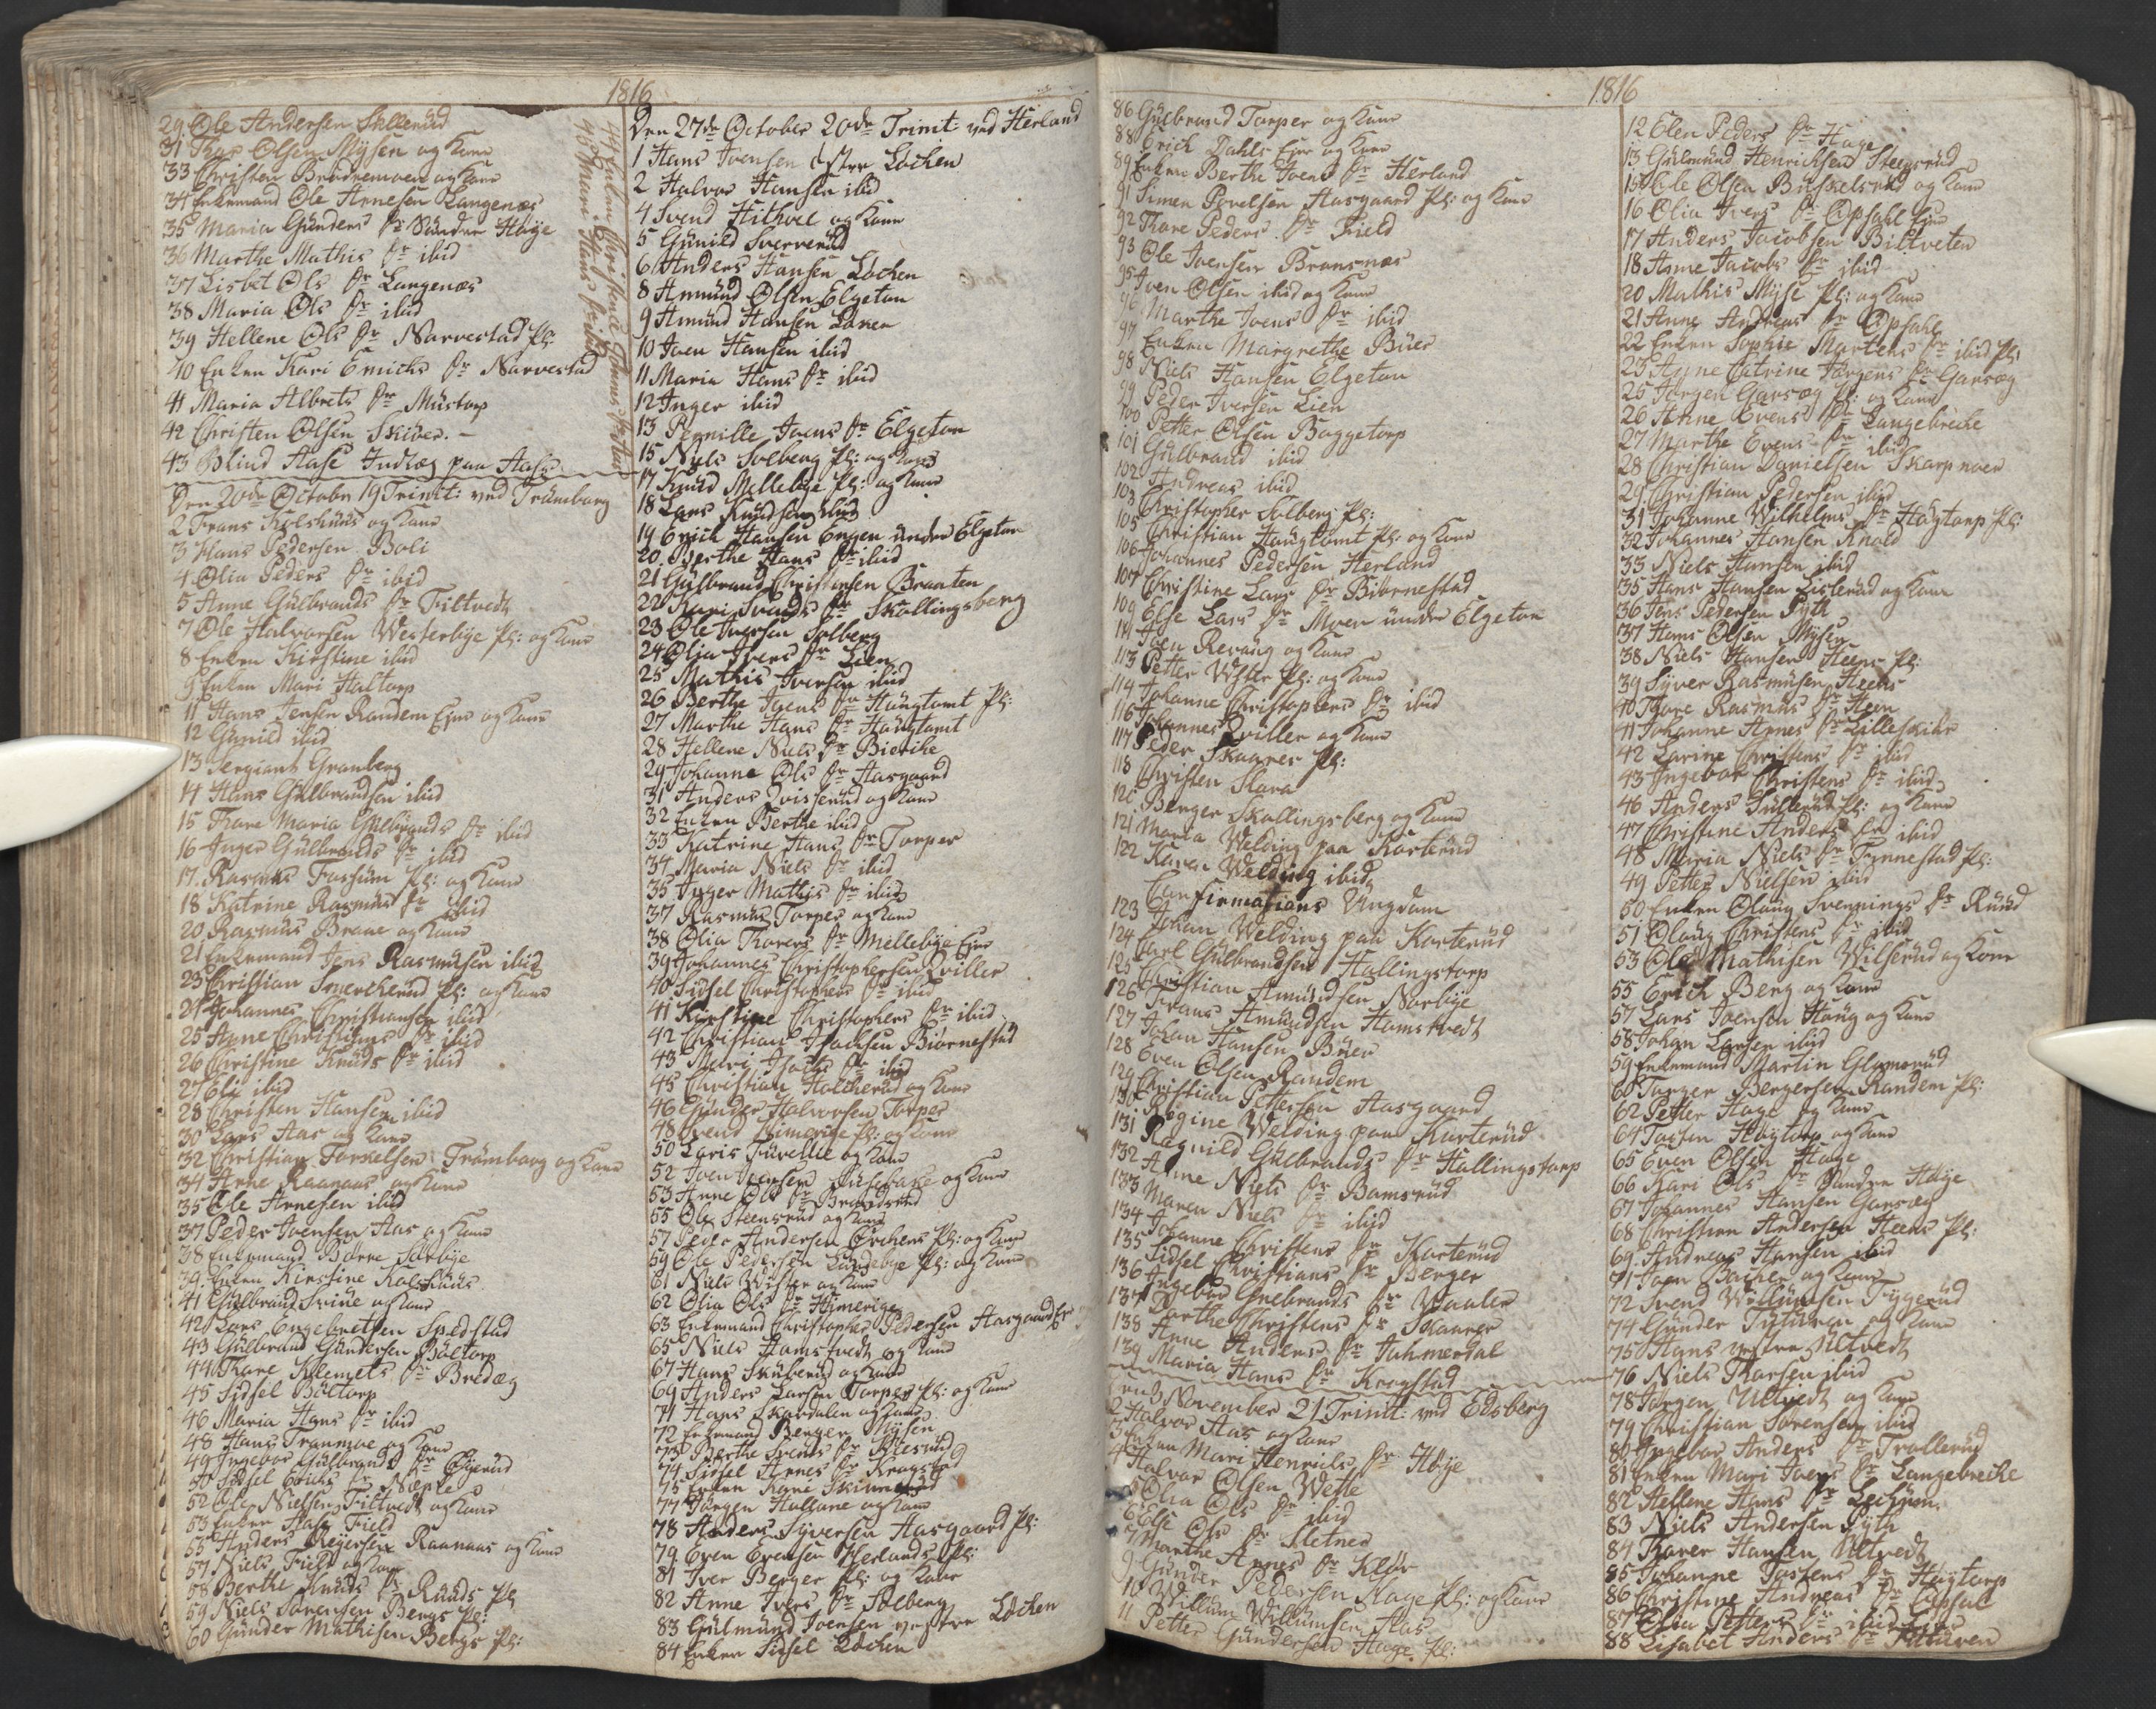 1816
29 Ole Andersen Skllerud
31 Thor Olsen Mysen og Kone
33 Christen Brødremoen og Kone
34 Enkemand Ole Arnesen Langenæs
35 Maria Gunders Dr Søndre Høye
36 Marthe Mathis Dr ibid
37 Lisbet Ols Dr Langenæs
38 Maria Ols Dr ibid
39 Hellene Ols Dr Narvestad Pl:
40 Enken Kari Emichs Dr Narvestad
41 Maria Albrets Dr Mustorp
42 Christen Olsen Skiver. –
43 Blind Aase Indlæg paa Aase
44 Enken Christence
45 Mari Hans Dr ibid
Den 20de October 19 Trinit: ved Trømborg
2 Frans Kolshuus og Kone
3 Hans Pedersen Boli
4 Olia Peders Dr ibid
5 Anne Gulbrands Dr Tiltvedt
7 Ole Halvorsen Westerbye Pl: og Kone
8 Enken Kirstine ibid
9 Enken Mari Haltorp
11 Hans Jensen Randem Eier og Kone
12 Gunild ibid
13 Sergiant Granberg
14 Hans Gulbrandsen ibid
15 Thore Maria Gulbrands Dr ibid
16 Inger Gulbrands Dr ibid
17. Rasmus Fossum Pl: og Kone
18 Katrine Rasmus Dr ibid
20 Rasmus Braae og Kone
21 Enkemand Jens Rasmusen ibid
23 Christian Smerkerud Pl: og Kone
24 Johannes Christiansen ibid
25 Anne Christians Dr ibid
26 Christine Knuds Dr ibid
27 Eli ibid
28 Christen Hansen ibid
30 Lars Aas og Kone
32 Christian Torkelsen Trømborg og Kone
34 Arne Raanaas og Kone
35 Ole Arnesen ibid
37 Peder Joensen Aas og Kone
38 Enkemand Børre Sørbye
39. Enken Kirstine Kolshuus
41 Gulbrand Sviue og Kone
42 Lars Engebretsen Spedstad
43 Gulbrand Gundersen Bøltorp
44 Thore Klemets Dr Bredæg
45 Sidsel Bøltorp
46 Maria Hans Dr ibid
48 Hans Tranmoe og Kone
49 Ingebor Gulbrands Dr Øyerud
50 Sidsel Erichs Dr Næple
52 Ole Nielsen Tiltvedt og Kone
53 Enken Aase Field
55 Anders Reyersen Raanaas og Kone
57 Niels Field og Kone
58 Berthe Knuds Dr Ruuds Pl
59 Niels Sørensen Bergs Pl:
60 Gunder Mathisen Bergs Pl:
Den 27de October 20de Trinit: ved Herland
1 Hans Joensen østre Løchen
2 Halvor Hansen ibid
4 Svend Hithoel og Kone
5 Gunild Sververud
6 Anders Hansen Løchen
8 Amund Olsen Elgeton
9 Amund Hansen Løken
10 Joen Hansen ibid
11 Maria Hans Dr ibid
12 Inger ibid
13 Pernille Joens Dr Elgeton
15 Niels Solberg Pl: og Kone
17 Knud Mellebye Pl: og Kone
18 Lars Knudsen ibid
19 Erich Hansen Engen under Elgeton
20. Berthe Hans Dr ibid
21 Gulbrand Christensen Braaten
22 Kari Svends Dr Skallingsberg
23 Ole Iversen Solberg
24 Olia Ivers Dr Lien
25 Mathis Iversen ibid
26 Berthe Joens Dr Haugtomt Pl:
27 Marthe Hans Dr Haugtomt
28 Hellene Niels Dr Bierche
29 Johanne Ols Dr Aasgaard
31 Anders Qvisserud og Kone
32 Enken Berthe ibid
33 Katrine Hans Dr Torper
34 Maria Niels Dr ibid
35 Inger Mathis Dr ibid
37 Rasmus Torper og Kone
38 Olia Thorers Dr Mellebye Eier
39 Johannes Christophersen Qviller
40 Sidsel Christophers Dr ibid
41 Kirstine Christophers Dr ibid
42 Christian Isachsen Biørnestad
43 Mari Isachs Dr ibid
45 Christian Holcherud og Kone
46 Gunder Halvorsen Torper
48 Svend Himerige Pl: og Kone
50 Loris Furvelle og Kone
52 Joen Joensen Husebake og Kone
53 Anne Ols Dr Brandsrud
55 Ole Steensrud og Kone
57 Peder Andersen Ørchens Pl: og Kone
59 Ole Pedersen Lundebye Pl: og Kone
61 Niels Wister og Kone
62 Olia Ols Dr Himerige
63 Enkemand Christopher Pedersen Aasgaard Er
65 Niels Hamstvedt og Kone
67 Hans Skuberud og Kone
69 Anders Larsen Torper Pl: og Kone
71 Hans Skardalen og Kone
72 Enkemand Berger Mysen
73 Berthe Svends Dr Klesrud
74 Sidsel Arnes Dr Kragstad
75 Enken Kone
77 Jørgen Hallane og Kone
78 Anders Syversen Aasgaard Pl:
79. Even Evensen Herlands Pl:
81 Iver Berger Pl: og Kone
82 Anne Ivers Dr Solberg
83 Gulmund Joensen vestre Løchen
84 Enken Sidsel Løchen
1816
86 Gulbrand Torper og Kone
88 Erich Dahls Eier og Kone
89 Enken Berthe Joens Dr Herland
91 Simen Povelsen Aasgaard Pl: og Kone
92 Thore Peders Dr Field
93 Ole Joensen Bransnæs
95 Iven Olsen ibid og Kone
96 Marthe Joens Dr ibid
97 Enken Margrethe Buer
98 Niels Hansen Elgeton
99 Peder Iversen Lien
100 Petter Olsen Baggetorp
101 Gulbrand ibid
102 Andreas ibid
103 Christopher Solberg Pl:
105 Christian Haugtomt Pl: og Kone
106 Johannes Pedersen Herland
107 Christine Lars Dr Biørnestad
109 Else Lars Dr Moen under Elgeton
111 Joen Revaug og Kone
113 Petter Wister Pl: og Kone
114 Johanne Christophers Dr ibid
116 Johannes Qviller og Kone
117 Peder Skaarer Pl:
118 Christen Skara
120 Berger Skallingsberg og Kone
121 Maria Welding paa Korterud
122 Karen Welding ibid
Confirmations Ungdom
123 Johan Welding paa Korterud
124 Carl Gulbrandsen Hallingstorp
125 Christian Amundsen Norbye
126 Frans Amundsen Hamstvedt
127 Johan Hansen Buer
128 Even Olsen Randem
129 Christian Pettersen Aasgaard
130 Regine Welding paa Korterud
131 Regnild Gulbrands Dr Hallingstorp
132 Anne Niels Dr Bamsrud
133 Maren Niels Dr ibid
134 Johanne Christens Dr Korterud
135 Sidsel Christians Dr Berger
136 Ingebor Gulbrands Dr Vaaler
137 Berthe Christens Dr Skaarer
138 Anne Anders Dr Juhmerdal
139 Maria Hans Dr Kragstad
Den 3 November 21 Trinit: ved Edsberg
2 Halvor Aas og Kone
3 Enken Mari Henrichs Dr Høye
4 Halvor Olsen Wette
5 Olia Ols Dr ibid
6 Else Ols Dr Sletner
7 Marthe Arnes Dr Kløv
9 Gunder Pedersen Hage Pl: og Kone
10 Willum Willumsen Aas
11 Petter Gundersen Hage Pl:
12 Elen Peders Dr Hage
13 Gulmund Henrichsen Steensrud
15 Ole Olsen Buskelsrud og Kone
16 Olia Ivers Dr Opsahl Eier
17 Anders Jacobsen Biltveten
18 Anne Jacobs Dr ibid
20 Mathis Myse Pl: og Kone
21 Anne Andreas Dr Opsahl
22 Enken Sophie Martens Dr ibid Pl:
23 Anne Catrine Jørgens Dr Garsæg
25 Jørgen Garsæg Pl: og Kone
26 Anne Evens Dr Langebreche
27 Marthe Evens Dr ibid
28 Christian Danielsen Skarpnoer
29. Christian Pedersen ibid
31 Johanne Wilhelms Dr Høytorp Pl:
32 Johannes Hansen Knold
33 Niels Hansen ibid
35 Hans Hansen Listerud og Kone
36 Jens Pedersen Pyth
37 Hans Olsen Mysen
38 Niels Hansen Heens Pl:
39 Syver Rasmusen Heens
40 Thore Rasmus Dr Heen
41 Johanne Arnes Dr Lilleskibr
42 Larine Christens Dr ibid
43 Ingebor Christens Dr ibid
46 Anders Sullerud Pl: og Kone
47 Christine Anders Dr ibid
48 Maria Niels Dr Tynnestad Pl:
49 Petter Nielsen ibid
50 Enken Olaug Svennings Dr Ruud
51 Olaug Christens Dr ibid
53 Ole Mathisen Wilserud og Kone
55 Erich Berg og Kone
57 Lars Joensen Haug og Kone
58 Johan Larsen ibid
59 Enkemand Martin Glomsrud
60 Torger Bergersen Randem Pl:
62 Petter Hage og Kone
64 Tosten Høytorp og Kone
65 Even Olsen Hage
66 Kari Ols Dr Søndre Høye
67 Johannes Hansen Garsæg
68 Christian Andersen Heens Pl:
69. Andreas Hansen ibid
71 Joen Bacher og Kone
72 Svend Willumsen Tygerud
74 Gunder Tuturen og Kone
75 Hans vestre Ultvedt
76 Niels Thorsen ibid
78 Jørgen Ultvedt og Kone
79 Christian Sørensen ibid
80 Ingebor Anders Dr Trollerud
81 Enken Mari Ivers Dr Langebreche
82 Hellene Hans Dr Lechum
83 Niels Andersen Pyth
84 Thorer Hansen Ultvedt
85 Johanne Tostens Dr Høytorp
86 Christine Andreas Dr Opsal
87 Olia Petters Dr ibid
88 Lisabet Anders Dr Tuturen